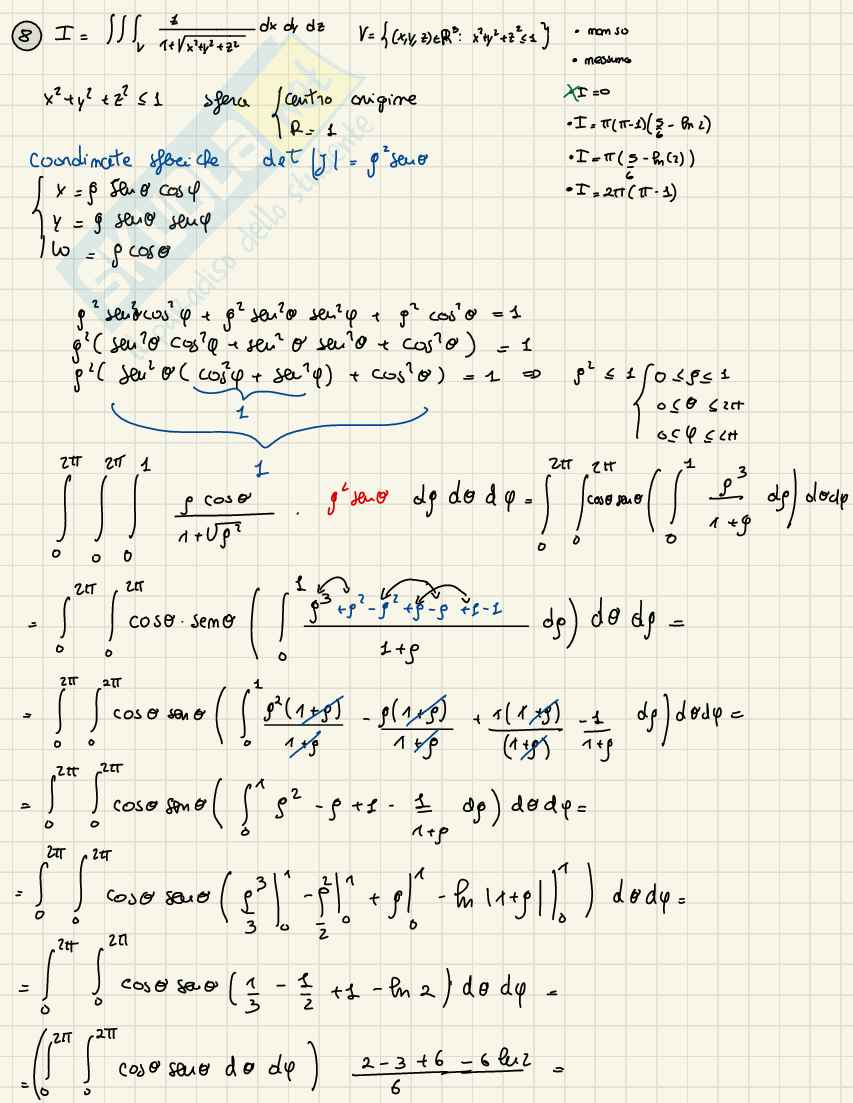 8 I = ∫∫∫_V z / (1+√(x²+y²+z²)) dx dy dz V = {(x,y,z)∈R³: x²+y²+z² ≤ 1} • non so
• nessuno
x²+y²+z² ≤ 1 sfera { centro origine X I = 0
R = 1 • I = π(π-1)(5/6 - ln 2)
coordinate sferiche det |J| = ρ² senθ • I = π(5/6 - ln(2))
{ x = ρ senθ cosφ • I = 2π(π-1)
y = ρ senθ senφ
w = ρ cosθ
SKUOLA.net
il paradiso dello studente
ρ² sen²θ cos²φ + ρ² sen²θ sen²φ + ρ² cos²θ = 1
ρ²(sen²θ cos²φ + sen²θ sen²θ + cos²θ) = 1
ρ²(sen²θ(cos²φ + sen²φ) + cos²θ) = 1 ⇒ ρ² ≤ 1 { 0 ≤ ρ ≤ 1
1 0 ≤ θ ≤ 2π
1 0 ≤ φ ≤ 2π
∫₀^2π ∫₀^2π ∫₀^1 ρ cosθ / (1+√ρ²) · ρ² senθ dρ dθ dφ = ∫₀^2π ∫₀^2π cosθ senθ (∫₀^1 ρ³/(1+ρ) dρ) dθdφ
= ∫₀^2π ∫₀^2π cosθ · senθ (∫₀^1 (ρ³ +ρ² -ρ² +ρ -ρ +1 -1)/(1+ρ) dρ) dθ dρ =
= ∫₀^2π ∫₀^2π cosθ senθ (∫₀^1 ρ²(1+ρ)/(1+ρ) - ρ(1+ρ)/(1+ρ) + 1(1+ρ)/(1+ρ) -1/(1+ρ) dρ) dθdφ =
= ∫₀^2π ∫₀^2π cosθ senθ (∫₀^1 ρ² - ρ + 1 - 1/(1+ρ) dρ) dθdφ =
= ∫₀^2π ∫₀^2π cosθ senθ (ρ³/3 |₀^1 - ρ²/2 |₀^1 + ρ |₀^1 - ln |1+ρ| |₀^1) dθdφ =
= ∫₀^2π ∫₀^2π cosθ senθ (1/3 - 1/2 + 1 - ln 2) dθ dφ =
= (∫₀^2π ∫₀^2π cosθ senθ dθ dφ) (2 - 3 + 6 - 6 ln 2)/6 =